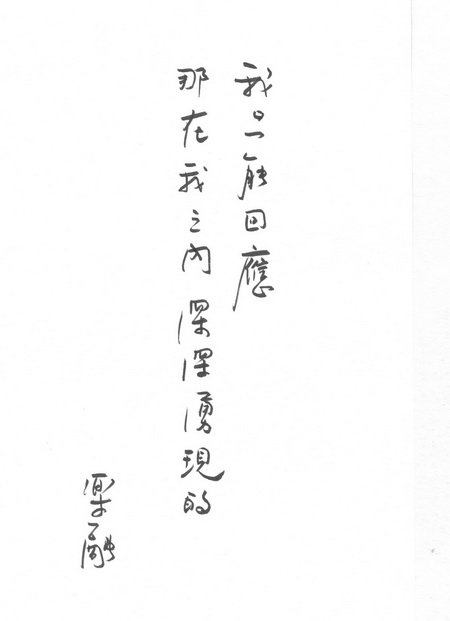 我只能回應
那在我之內深深湧現的
樂融